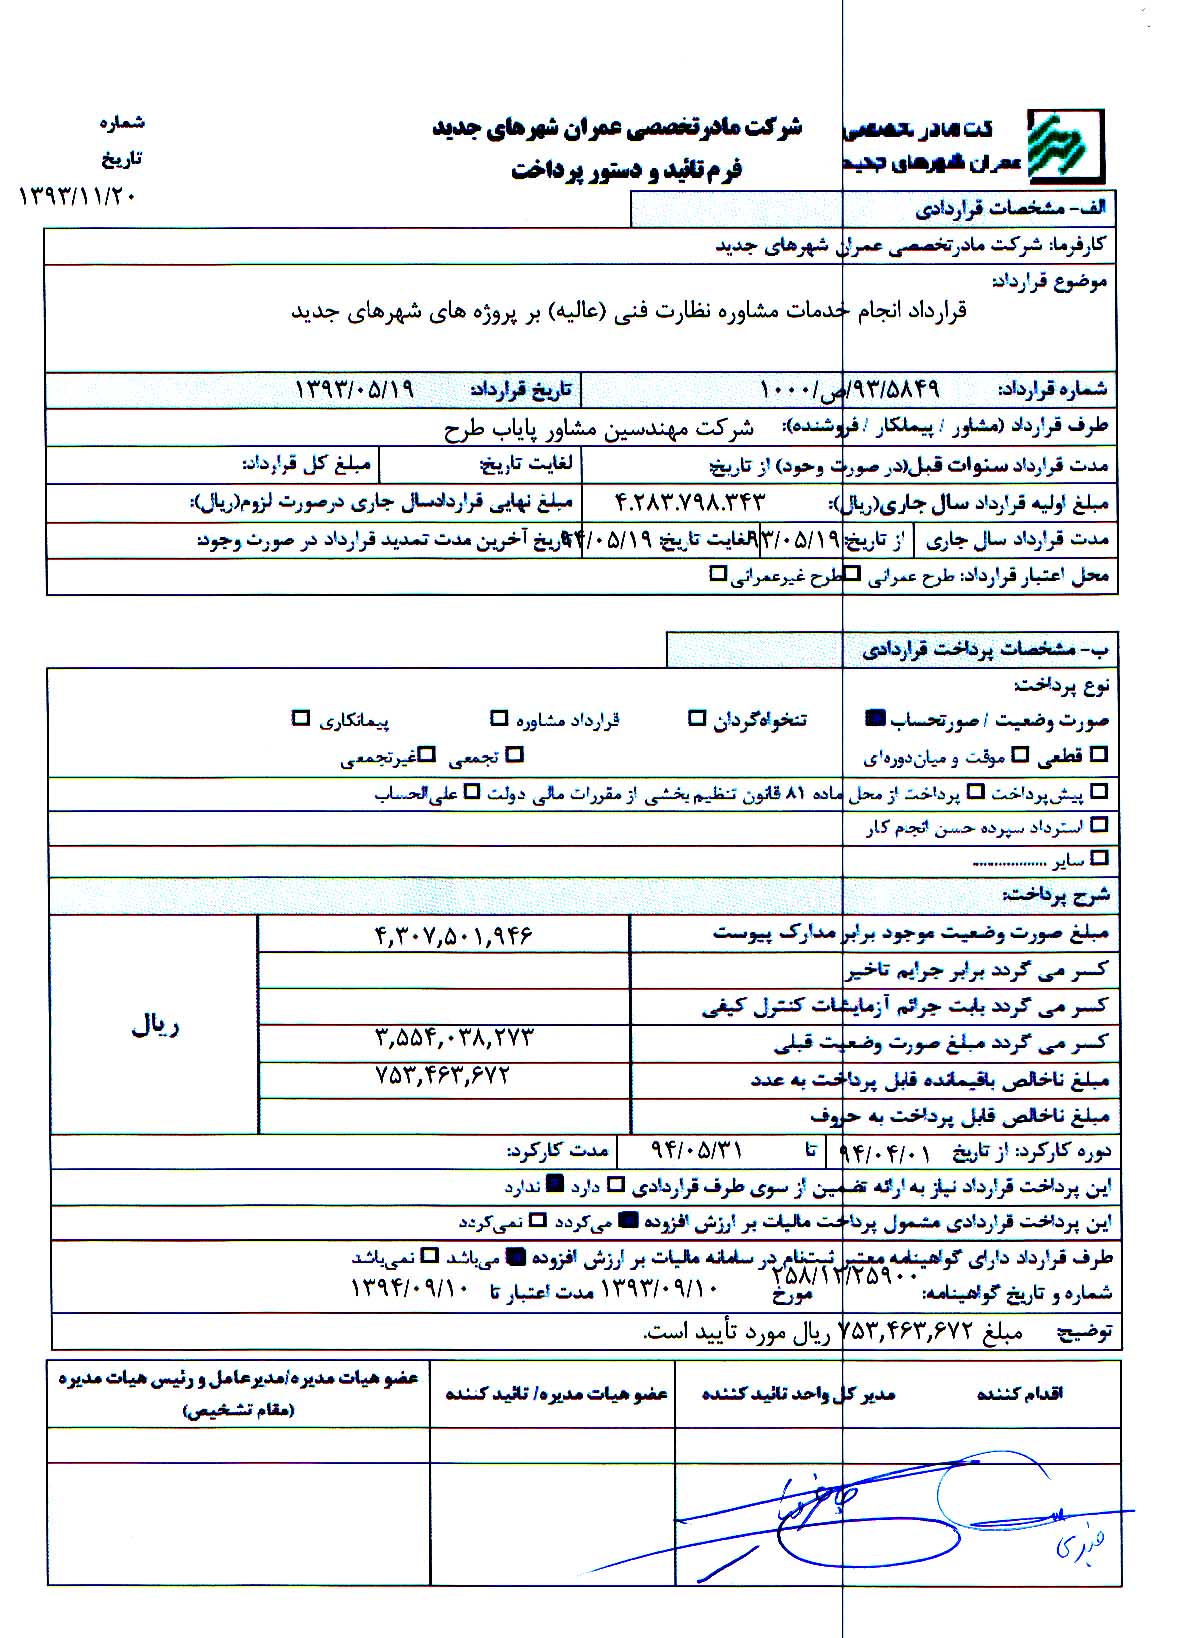 شرکت مادر تخصصی
عمران شهرهای جدید
شرکت مادرتخصصی عمران شهرهای جدید
فرم تائید و دستور پرداخت
شماره
تاریخ
۱۳۹۳/۱۱/۲۰
الف- مشخصات قراردادی
کارفرما: شرکت مادرتخصصی عمران شهرهای جدید
موضوع قرارداد:
قرارداد انجام خدمات مشاوره نظارت فنی (عالیه) بر پروژه های شهرهای جدید
شماره قرارداد: ۹۳/۵۸۴۹/ص/۱۰۰۰ تاریخ قرارداد: ۱۳۹۳/۰۵/۱۹
طرف قرارداد (مشاور / پیمانکار / فروشنده): شرکت مهندسین مشاور پایاب طرح
مدت قرارداد سنوات قبل(در صورت وجود) از تاریخ: لغایت تاریخ: مبلغ کل قرارداد:
مبلغ اولیه قرارداد سال جاری(ریال): ۴.۲۸۳.۷۹۸.۳۴۳ مبلغ نهایی قراردادسال جاری درصورت لزوم(ریال):
مدت قرارداد سال جاری از تاریخ: ۹۳/۰۵/۱۹ لغایت تاریخ: ۹۴/۰۵/۱۹ تاریخ آخرین مدت تمدید قرارداد در صورت وجود:
محل اعتبار قرارداد: طرح عمرانی □ طرح غیرعمرانی □
ب- مشخصات پرداخت قراردادی
نوع پرداخت:
صورت وضعیت / صورتحساب ■ تنخواه‌گردان □ قرارداد مشاوره □ پیمانکاری □
□ قطعی □ موقت و میان‌دوره‌ای □ تجمعی □ غیرتجمعی
□ پیش‌پرداخت □ پرداخت از محل ماده ۸۱ قانون تنظیم بخشی از مقررات مالی دولت □ علی‌الحساب
□ استرداد سپرده حسن انجام کار
□ سایر ..................
شرح پرداخت:
مبلغ صورت وضعیت موجود برابر مدارک پیوست ۴,۳۰۷,۵۰۱,۹۴۶
کسر می گردد برابر جرایم تاخیر
کسر می گردد بابت جرائم آزمایشات کنترل کیفی
ریال
کسر می گردد مبلغ صورت وضعیت قبلی ۳,۵۵۴,۰۳۸,۲۷۳
مبلغ ناخالص باقیمانده قابل پرداخت به عدد ۷۵۳,۴۶۳,۶۷۲
مبلغ ناخالص قابل پرداخت به حروف
دوره کارکرد: از تاریخ ۹۴/۰۴/۰۱ تا ۹۴/۰۵/۳۱ مدت کارکرد:
این پرداخت قرارداد نیاز به ارائه تضمین از سوی طرف قراردادی □ دارد ■ ندارد
این پرداخت قراردادی مشمول پرداخت مالیات بر ارزش افزوده ■ می‌گردد □ نمی‌گردد
طرف قرارداد دارای گواهینامه معتبر ثبت‌نام در سامانه مالیات بر ارزش افزوده ■ می‌باشد □ نمی‌باشد
شماره و تاریخ گواهینامه: ۲۵۸/۱۲/۲۵۹۰۰ مورخ ۱۳۹۳/۰۹/۱۰ مدت اعتبار تا ۱۳۹۴/۰۹/۱۰
توضیح: مبلغ ۷۵۳,۴۶۳,۶۷۲ ریال مورد تأیید است.
اقدام کننده مدیر کل واحد تائید کننده عضو هیات مدیره/ تائید کننده عضو هیات مدیره/مدیرعامل و رئیس هیات مدیره
(مقام تشخیص)